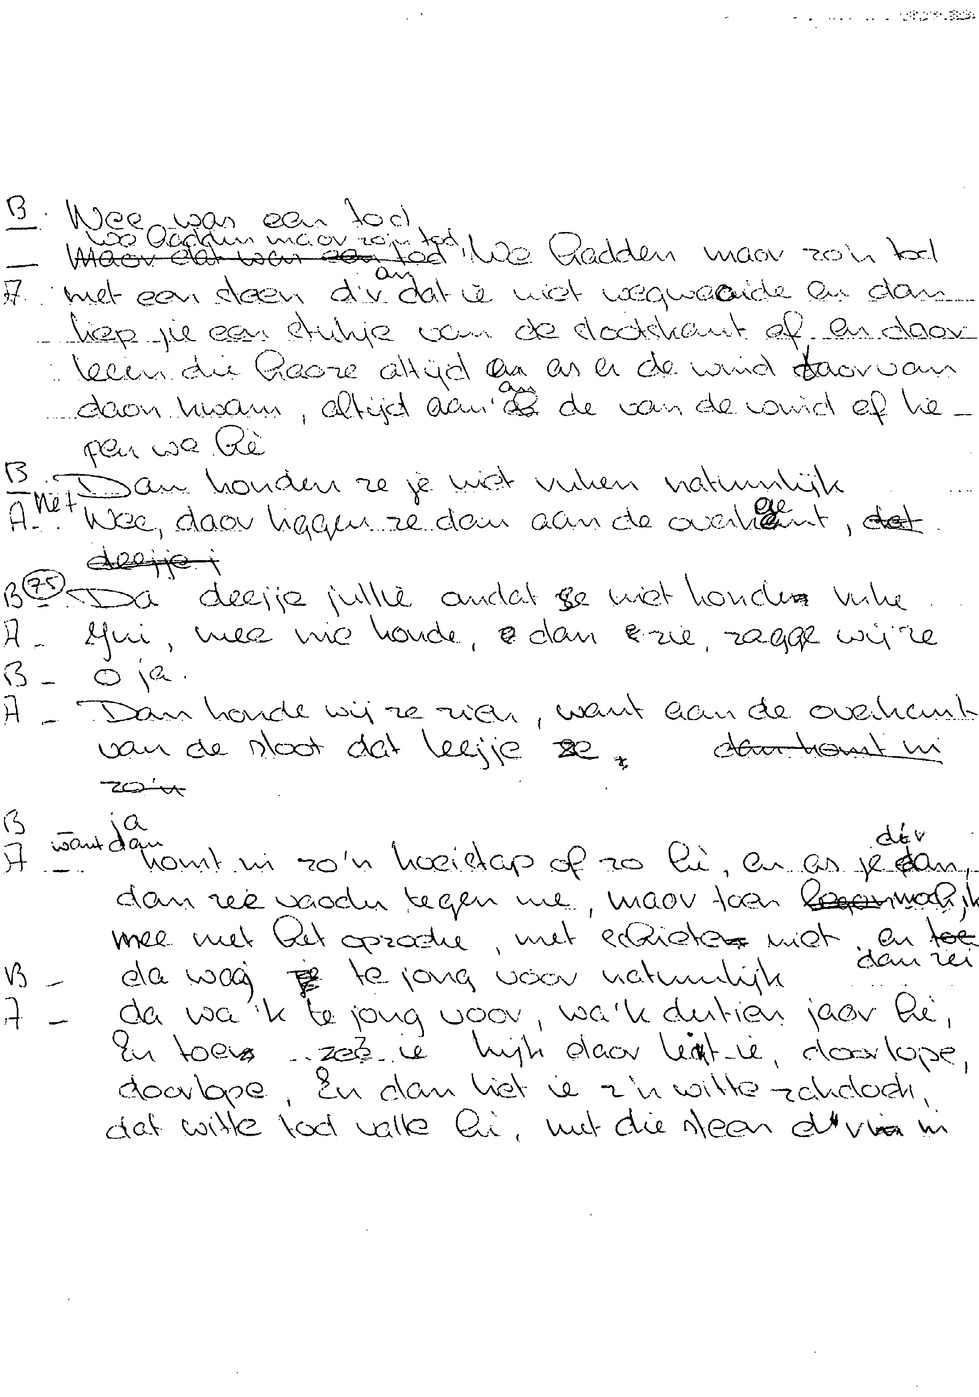 B. Nee was een tod
we hadden maar zo'n tod
— Maar dat was een tod. We hadden maar zo'n tod
an
A. met een steen d'r dat ie niet wegwaaide en dan
liep jie een stukje van de slootskant af en daar
leen die haoze altijd an as er de wind daarvan
an
daan kwam, altijd aan de van de wind of lie-
pen we hè
B. Dan konden ze je niet ruken natuurlijk
— net
A. Nee, daar liggen ze dan aan de overkant, dat
deejje j
B (75) - Da deejje jullie omdat ze niet konden ruke
A - , nee nie konde, dan zie, zagge wij ze
B - o ja.
A - Dan konde wij ze zien, want aan de overkant
van de sloot dat leejje ze, dan komt in
zo'n
B ja
want dan d'r
A - komt in zo'n koeietap of zo hè, en as je dan,
dan zee vaoder tegen me, maar toen mocht ik
nee met het oprochie, met schiete niet, en toe
dan zei
B - da waj je te jong voor natuurlijk
A - da wa'k te jong voor, wa'k dertien jaar hè,
En toen zee ie kijk daar leit-ie, doorlope,
doorlope, En dan liet ie z'n witte zakdoek,
dat witte tod valle hè, met die steen d'r in